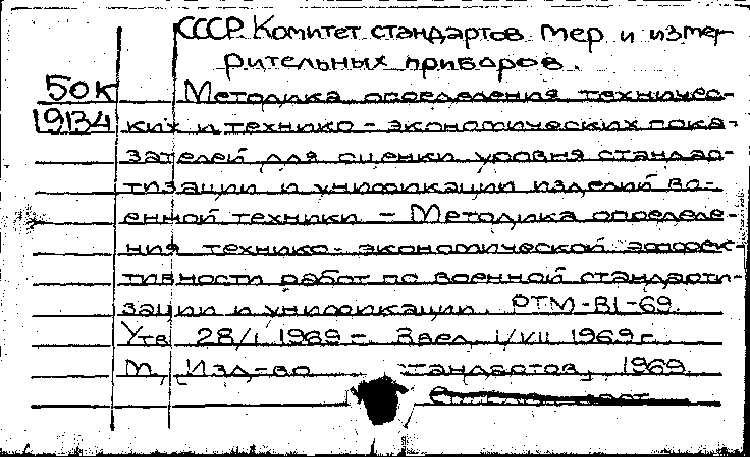 СССР. Комитет стандартов мер и измер-
рительных приборов.
50к Методика определения техничес-
19134 ких и технико-экономических пока-
зателей для оценки уровня стандар-
тизации и унификации изделий во-
енной техники - Методика определе-
ния технико-экономической эффек-
тивности работ по военной стандарти-
зации и унификации. РТМ-В1-69.
Утв 28/I 1969 г. Введ. 1/VII 1969 г.
М, Изд-во стандартов, 1969.